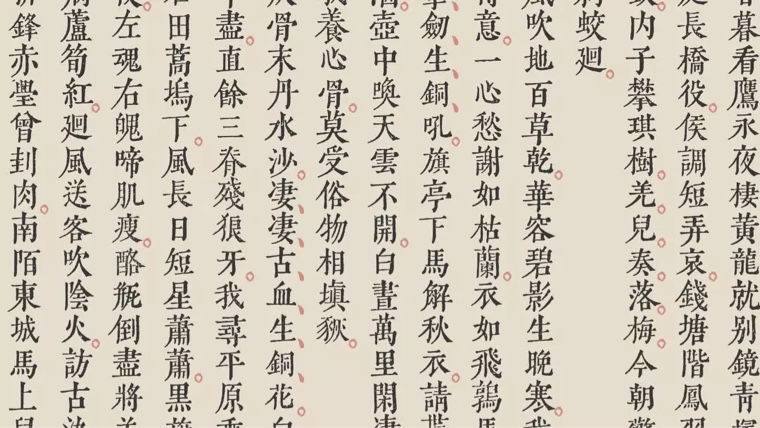 暮看鷹永夜棲黃龍就別鏡青
長橋役侯調短弄哀錢塘階鳳羽
内子攀琪樹羌兒奏落梅今朝
蛟廻
風吹地百草乾華容碧影生晚寒我
意一心愁謝如枯蘭衣如飛鶉馬
劒生銅吼旗亭下馬解秋衣請
壺中喚天雲不開白晝萬里閑凄
養心骨莫受俗物相塡豥
骨末丹水沙凄凄古血生銅花白
盡直餘三脊殘狼牙我尋平原乘
田蒿塢下風長日短星蕭蕭黑旗
左魂右魄啼肌瘦酪瓶倒盡將羊
蘆筍紅廻風送客吹陰火訪古
鋒赤璺曾刲肉南陌東城馬上兒